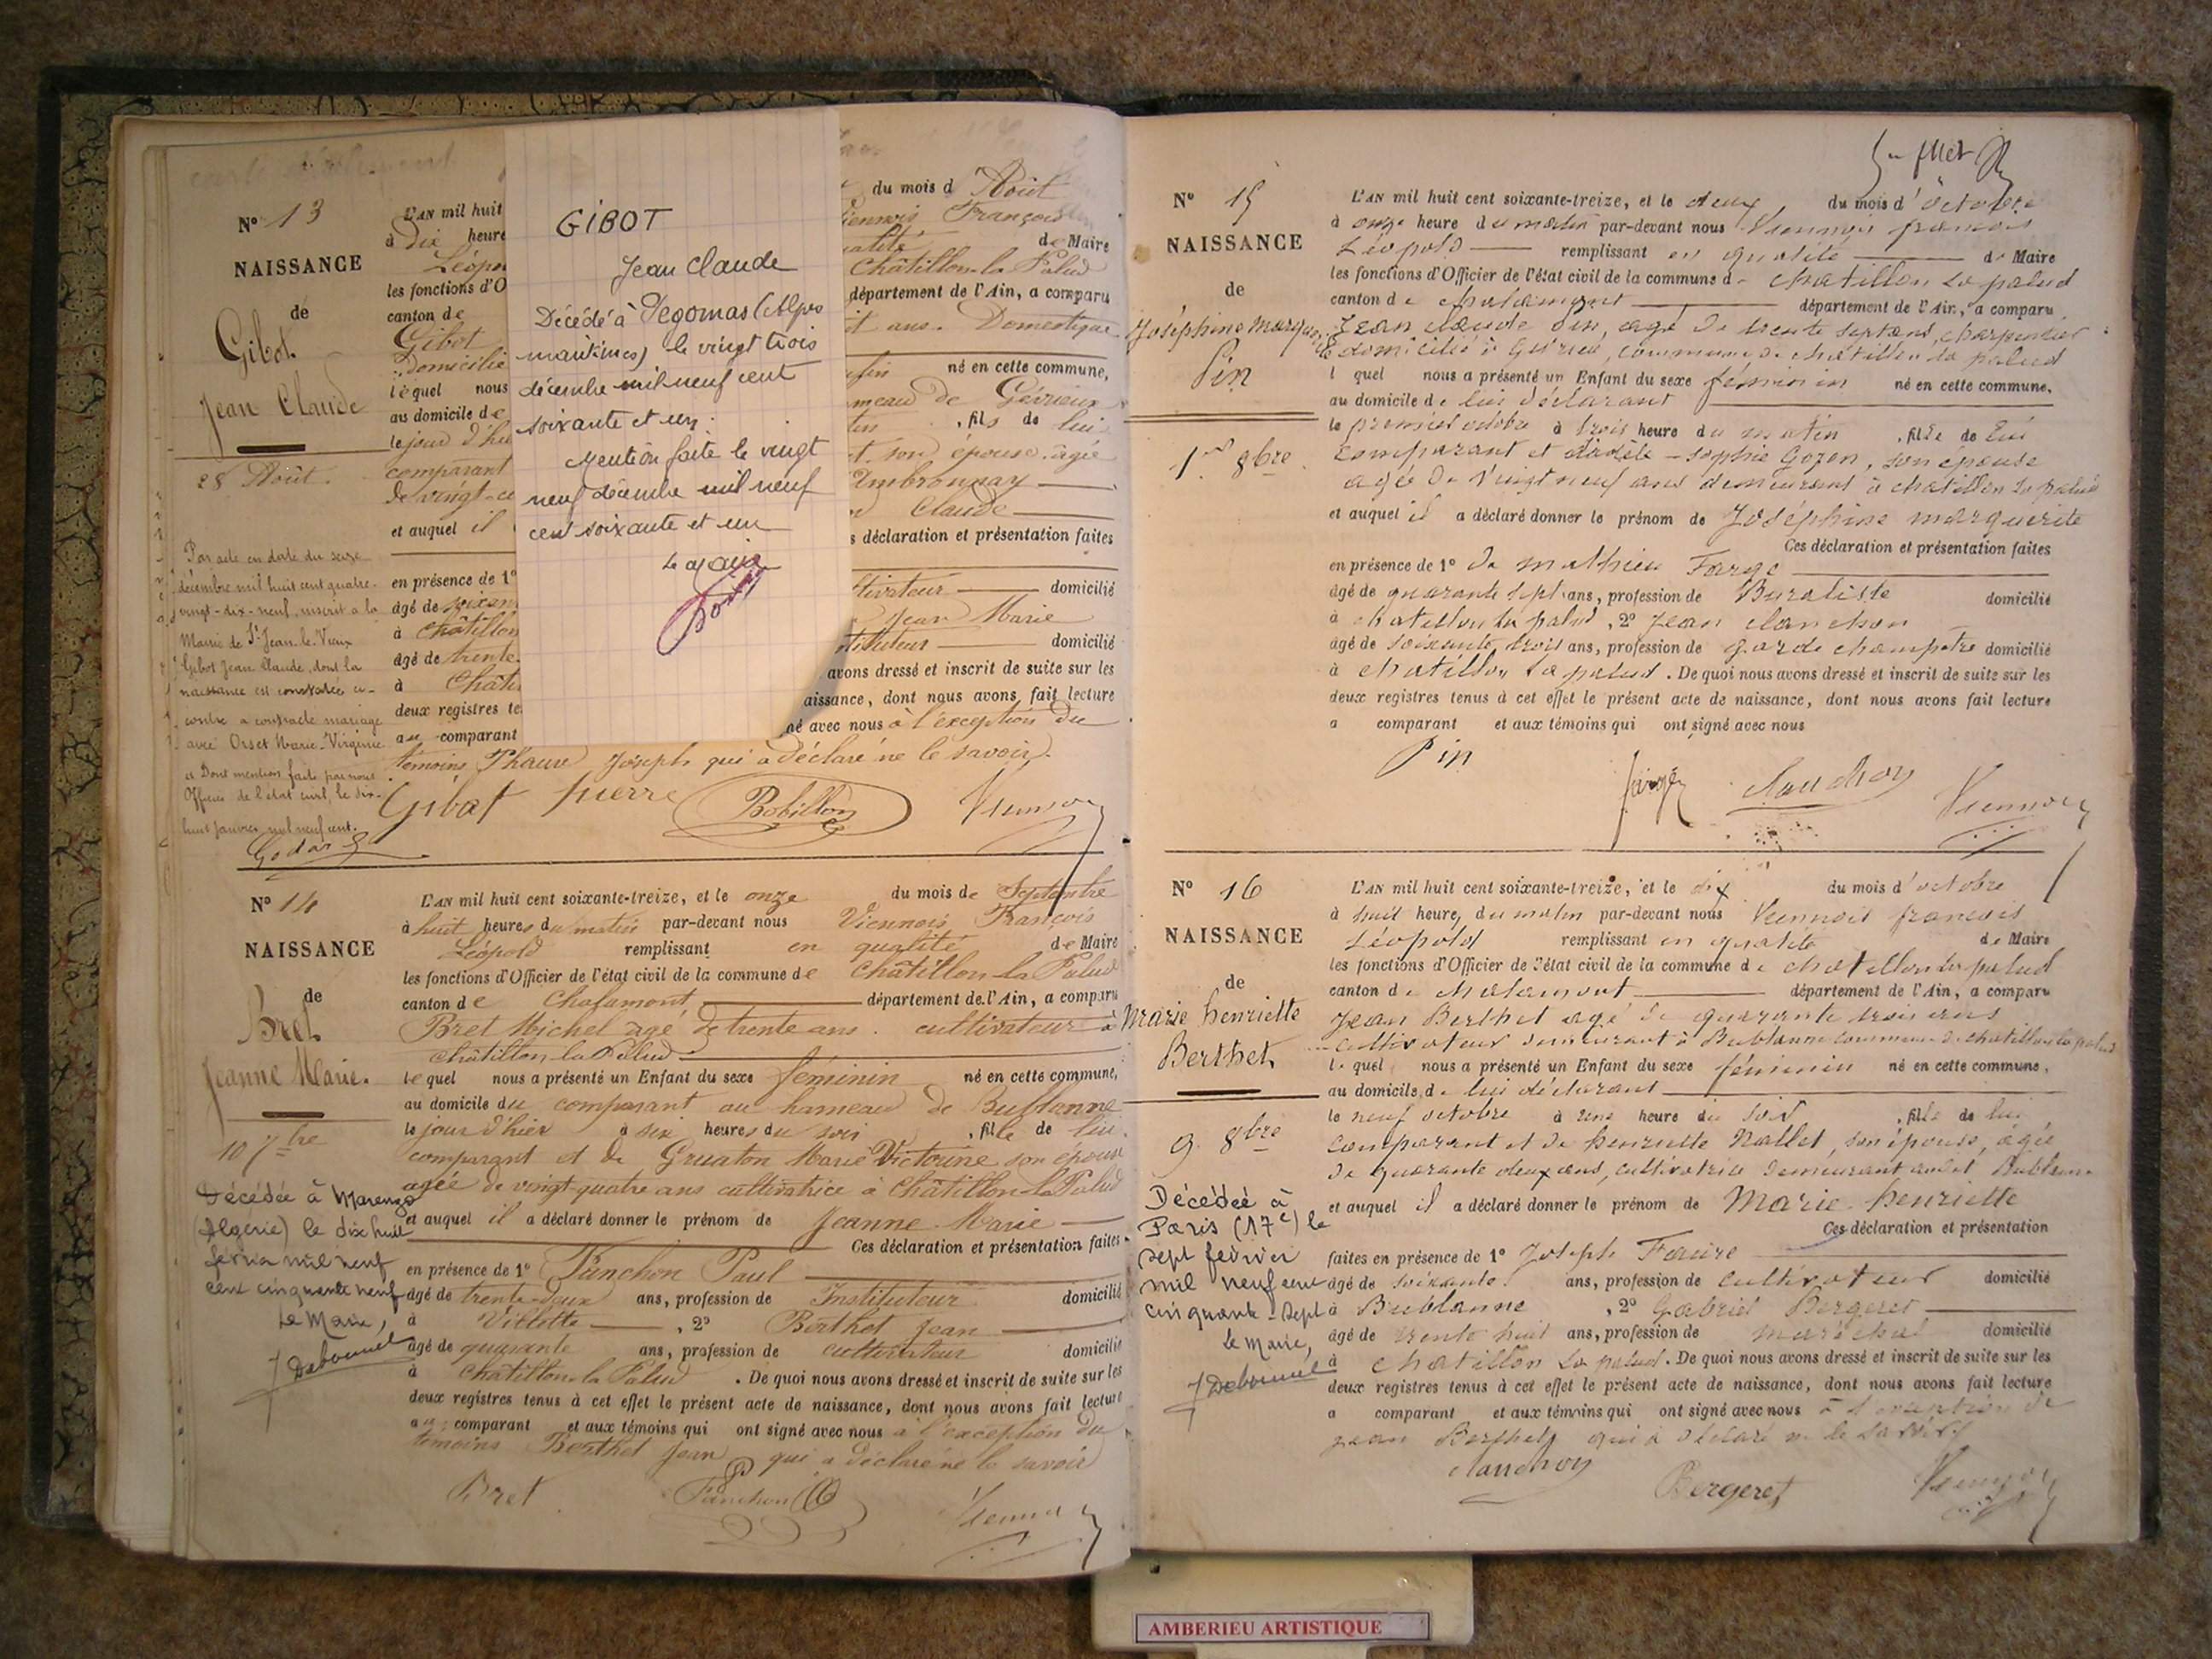 N° 13
NAISSANCE
de
Gibot
Jean Claude
28 Août.
Par acte en date du seize
décembre mil huit cent quatre-
vingt-dix-neuf, inscrit a la
Mairie de St Jean-le-Vieux
Gibot Jean Claude, dont la
naissance est constatée ci-
contre a contracté mariage
avec Orset Marie-Virginie
Dont mention faite par nous
Officier de l'état civil, le dix-
huit janvier mil neuf cent.
L'AN mil huit
à Dix heure
Léopo
les fonctions d'O
canton de
Gibot
Domicilié
lequel nous
au domicile de
le jour d'hu
comparant
de vingt-
et auquel il
en présence de 1°
âgé de soixan
à Châtillon
âgé de trente
à Châti
deux registres te
au comparant
GIBOT
Jean Claude
Décédé à Pegomas (Alpes
maritimes) le vingt trois
décembre mil neuf cent
soixante et un.
Mention faite le vingt
neuf décembre mil neuf
cent soixante et un
Le Maire
du mois d'Août
Viennois François
qualité de Maire
Châtillon-la-Palud
département de l'Ain, a comparu
it ans. Domestique
né en cette commune,
meau de Gévrieux
, fils de lui
t son épouse âgée
Ambronnay
Claude
s déclaration et présentation faites
ltivateur domicilié
Jean Marie
stituteur domicilié
avons dressé et inscrit de suite sur les
aissance, dont nous avons fait lecture
né avec nous à l'exception du
témoins Joseph qui a déclaré ne le savoir.
Gibot pierre Bobillon Viennois
N° 14
NAISSANCE
de
Bret
Jeanne Marie.
10 7bre
Décédée à Marengo
(Algerie) le dix huit
mil neuf
cent cinquante neuf
Le Maire,
L'AN mil huit cent soixante-treize, et le onze du mois de Septembre
à huit heures du matin par-devant nous Viennois François
Léopold remplissant en qualité de Maire
les fonctions d'Officier de l'état civil de la commune de Châtillon-la-Palud
canton de Chalamont département de l'Ain, a comparu
Bret Michel âgé de trente ans. cultivateur à
Châtillon-la-Palud
lequel nous a présenté un Enfant du sexe féminin né en cette commune,
au domicile du comparant au hameau de Bublanne
le jour d'hier à six heures du soir , fille de lui
comparant et de Gruaton Marie Victorine son épouse
agée de vingt-quatre ans cultivatrice à Châtillon-la-Palud
et auquel il a déclaré donner le prénom de Jeanne Marie
Ces déclaration et présentation faites
en présence de 1° Fanchon Paul
âgé de trente-deux ans, profession de Instituteur domicilié
à Villette , 2° Berthet Jean
âgé de quarante ans, profession de cultivateur domicilié
à Châtillon-la-Palud . De quoi nous avons dressé et inscrit de suite sur les
deux registres tenus à cet effet le présent acte de naissance, dont nous avons fait lecture
au comparant et aux témoins qui ont signé avec nous à l'exception du
témoins Berthet Jean qui a déclaré ne le savoir
Bret Fanchon Viennois
N° 15
NAISSANCE
de
Joséphine Marguerite
Pin
1er 8bre.
L'AN mil huit cent soixante-treize, et le deux du mois d'octobre
à onze heure du matin par-devant nous Viennois françois
Léopold remplissant en qualité de Maire
les fonctions d'Officier de l'état civil de la commune de chatillon la palud
canton de chalamont département de l'Ain, a comparu
Jean claude Pin, agé de trente sept ans, charpentier
domicilié à Gévrieu, commune de châtillon la palud
lequel nous a présenté un Enfant du sexe féminin né en cette commune,
au domicile de lui déclarant
le premier octobre à trois heure du matin , fille de lui
comparant et d'adèle - sophie Gozon, son épouse
agée de vingt neuf ans demeurant à chatillon la palud
et auquel il a déclaré donner le prénom de Joséphine marguerite
Ces déclaration et présentation faites
en présence de 1° de mathieu Farge
âgé de quarante sept ans, profession de Buraliste domicilié
à chatillon la palud , 2° Jean clanchon
âgé de soixante trois ans, profession de garde champetre domicilié
à chatillon la palud . De quoi nous avons dressé et inscrit de suite sur les
deux registres tenus à cet effet le présent acte de naissance, dont nous avons fait lecture
a comparant et aux témoins qui ont signé avec nous
Pin farge clanchon Viennois
N° 16
NAISSANCE
de
Marie henriette
Berthet
9. 8bre
Décédée à
Paris (17e) le
sept février
mil neuf cent
cinquante-sept
le Maire,
L'AN mil huit cent soixante-treize, et le dix du mois d'octobre
à huit heure, du matin par-devant nous Viennois françois
Léopold remplissant en qualité de Maire
les fonctions d'Officier de l'état civil de la commune de chatillon la palud
canton de chalamont département de l'Ain, a comparu
Jean Berthet agé de quarante trois ans
cultivateur demeurant à Bublanne commune de chatillon la palud
lequel nous a présenté un Enfant du sexe féminin né en cette commune,
au domicile de lui déclarant
le neuf octobre à une heure du soir , fille de lui
comparant et de henriette Nallet, son épouse, agée
de quarante deux ans, cultivatrice demeurant audit Bublanne
et auquel il a déclaré donner le prénom de Marie henriette
Ces déclaration et présentation
faites en présence de 1° Joseph Faure
âgé de soixante ans, profession de cultivateur domicilié
à Bublanne , 2° Gabriel Bergeret
âgé de trente huit ans, profession de maréchal domicilié
à chatillon la palud. De quoi nous avons dressé et inscrit de suite sur les
deux registres tenus à cet effet le présent acte de naissance, dont nous avons fait lecture
a comparant et aux témoins qui ont signé avec nous à l'exception de
jean Berthet qui a déclaré ne le savoir
clanchon Bergeret Viennois
AMBERIEU ARTISTIQUE